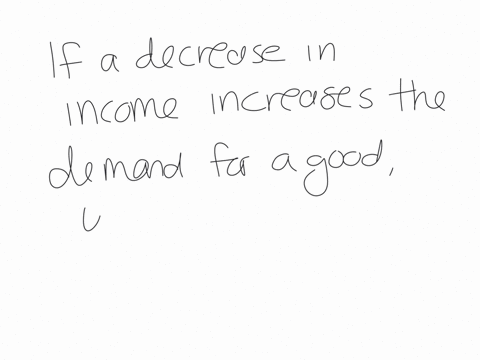 If a decrease in
income increases the
demand for a good,